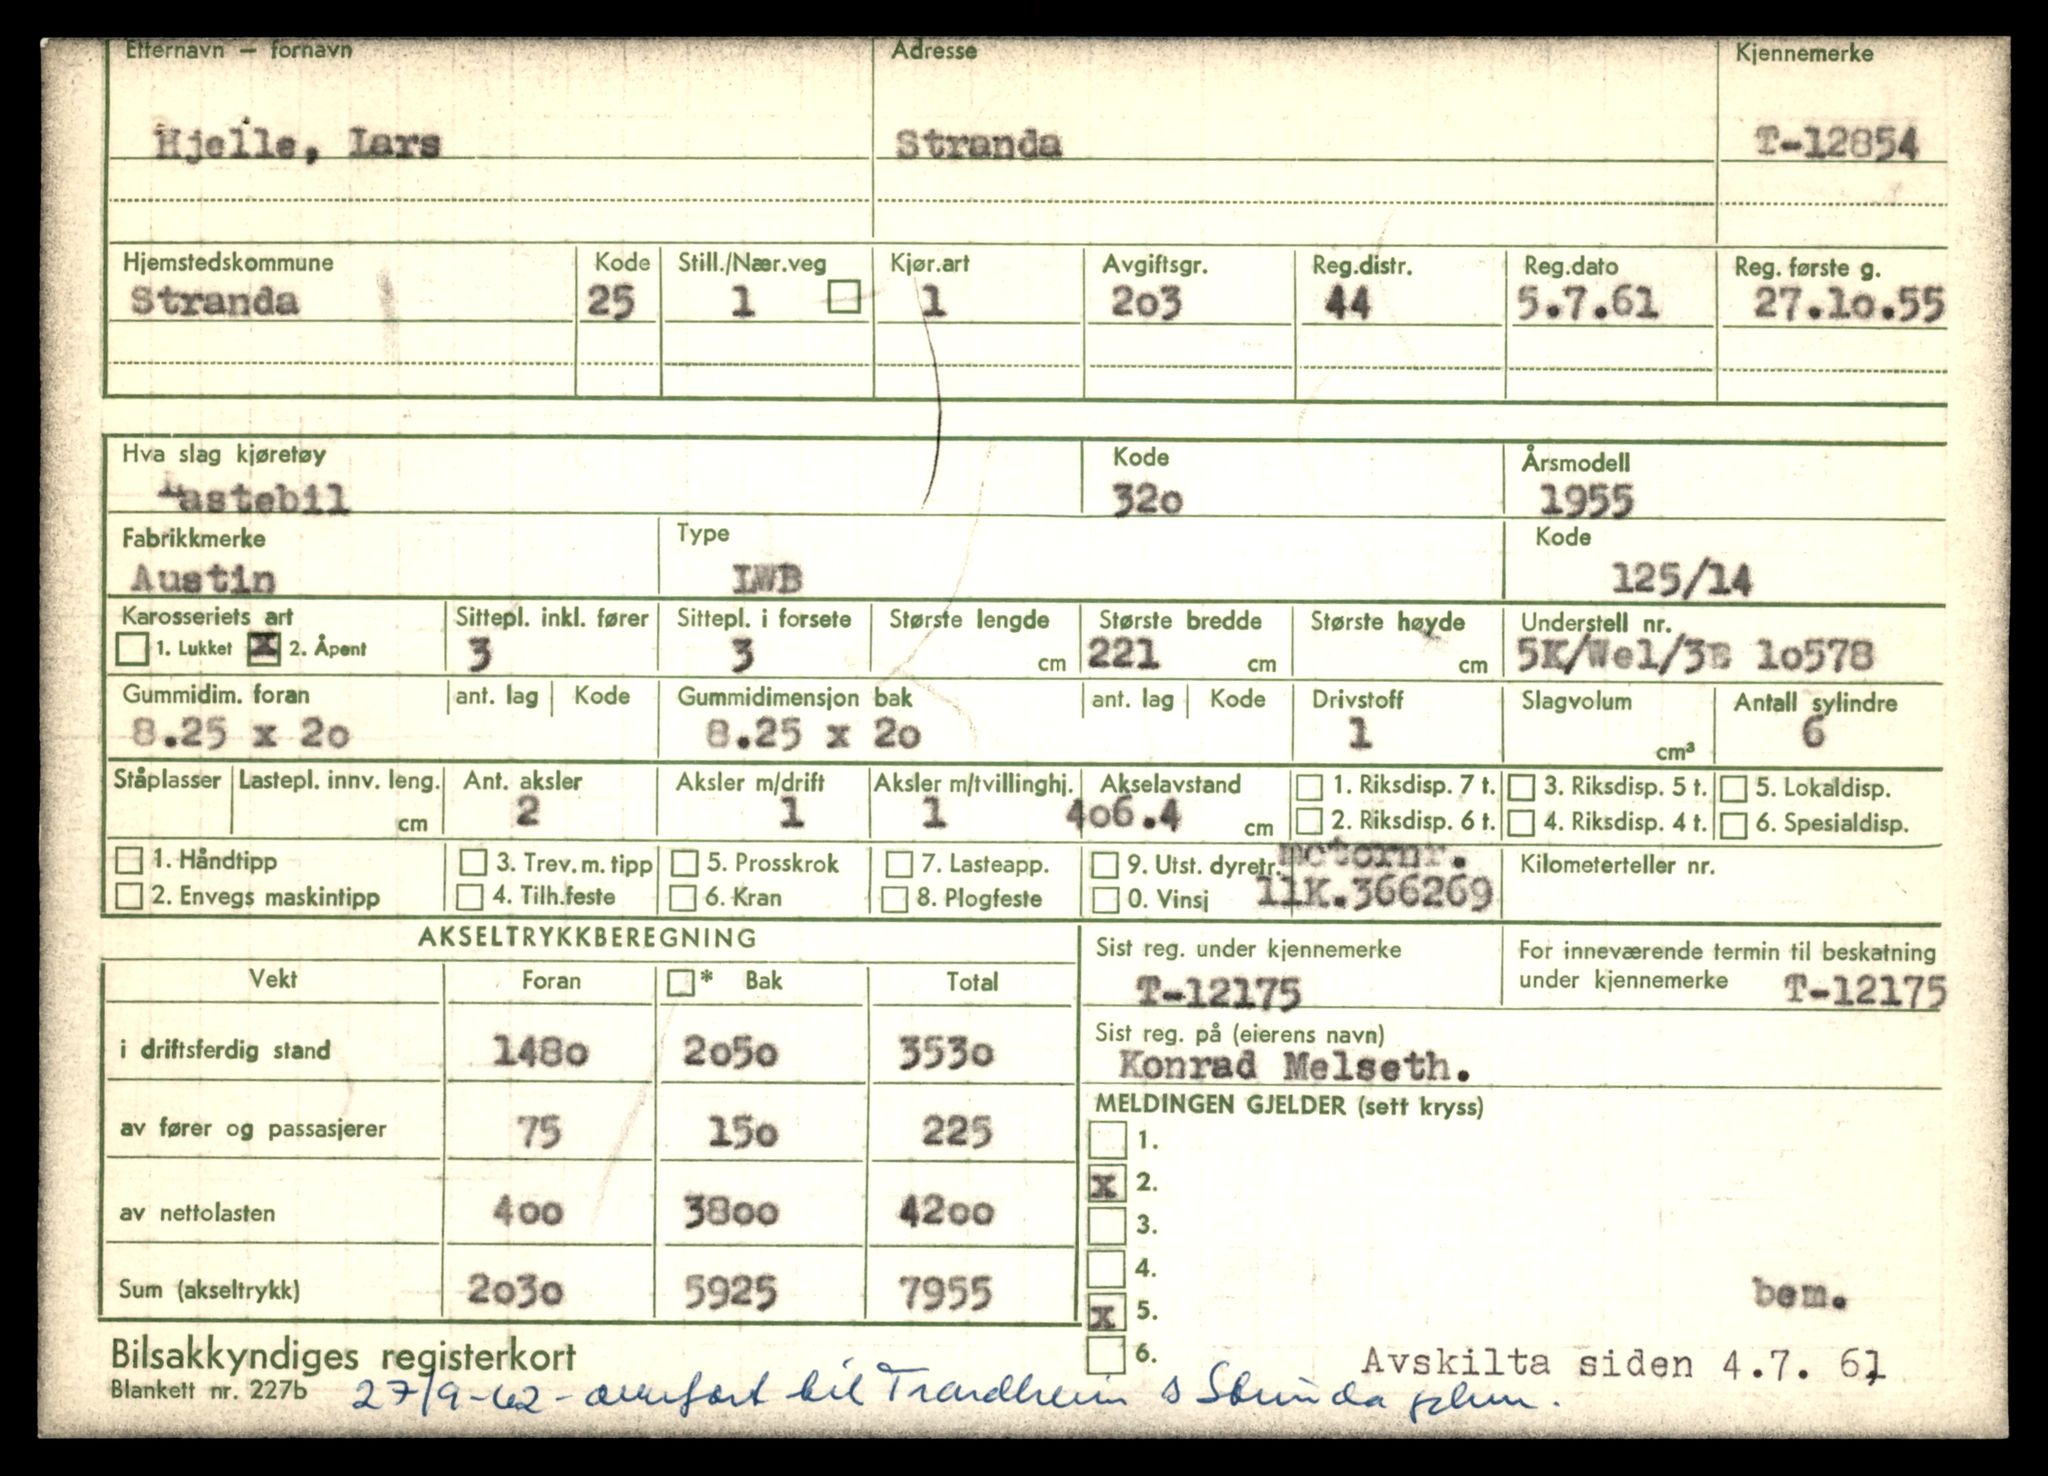 Etternavn — fornavn Adresse Kjennemerke
Hjelle, Lars Stranda T-12854
Hjemstedskommune Kode Still./Nær.veg Kjør.art Avgiftsgr. Reg.distr. Reg.dato Reg. første g.
Stranda 25 1 1 2o3 44 5.7.61 27.1o.55
Hva slag kjøretøy Kode Årsmodell
Lastebil 32o 1955
Fabrikkmerke Type Kode
Austin LWB 125/14
Karosseriets art Sittepl. inkl. fører Sittepl. i forsete Største lengde Største bredde Største høyde Understell nr.
1. Lukket x 2. Åpent 3 3 cm 221 cm cm 5K/Wel/3B 1o578
Gummidim. foran ant. lag Kode Gummidimensjon bak ant. lag Kode Drivstoff Slagvolum Antall sylindre
8.25 x 2o 8.25 x 2o 1 cm³ 6
Ståplasser Lastepl. innv. leng. Ant. aksler Aksler m/drift Aksler m/tvillinghj. Akselavstand 1. Riksdisp. 7 t. 3. Riksdisp. 5 t. 5. Lokaldisp.
cm 2 1 1 4o6.4 cm 2. Riksdisp. 6 t. 4. Riksdisp. 4 t. 6. Spesialdisp.
1. Håndtipp 3. Trev. m. tipp 5. Prosskrok 7. Lasteapp. 9. Utst. dyretr. motornr. Kilometerteller nr.
2. Envegs maskintipp 4. Tilh.feste 6. Kran 8. Plogfeste 0. Vinsj 11K.366269
AKSELTRYKKBEREGNING Sist reg. under kjennemerke For inneværende termin til beskatning
Vekt Foran * Bak Total T-12175 under kjennemerke T-12175
Sist reg. på (eierens navn)
i driftsferdig stand 148o 2o5o 353o Konrad Melseth.
MELDINGEN GJELDER (sett kryss)
av fører og passasjerer 75 15o 225 1.
x 2.
av nettolasten 4oo 38oo 42oo 3.
4.
Sum (akseltrykk) 2o3o 5925 7955 bem.
x 5.
Bilsakkyndiges registerkort 6. Avskilta siden 4.7. 61
Blankett nr. 227b 27/9-62 - overført til Trondheim